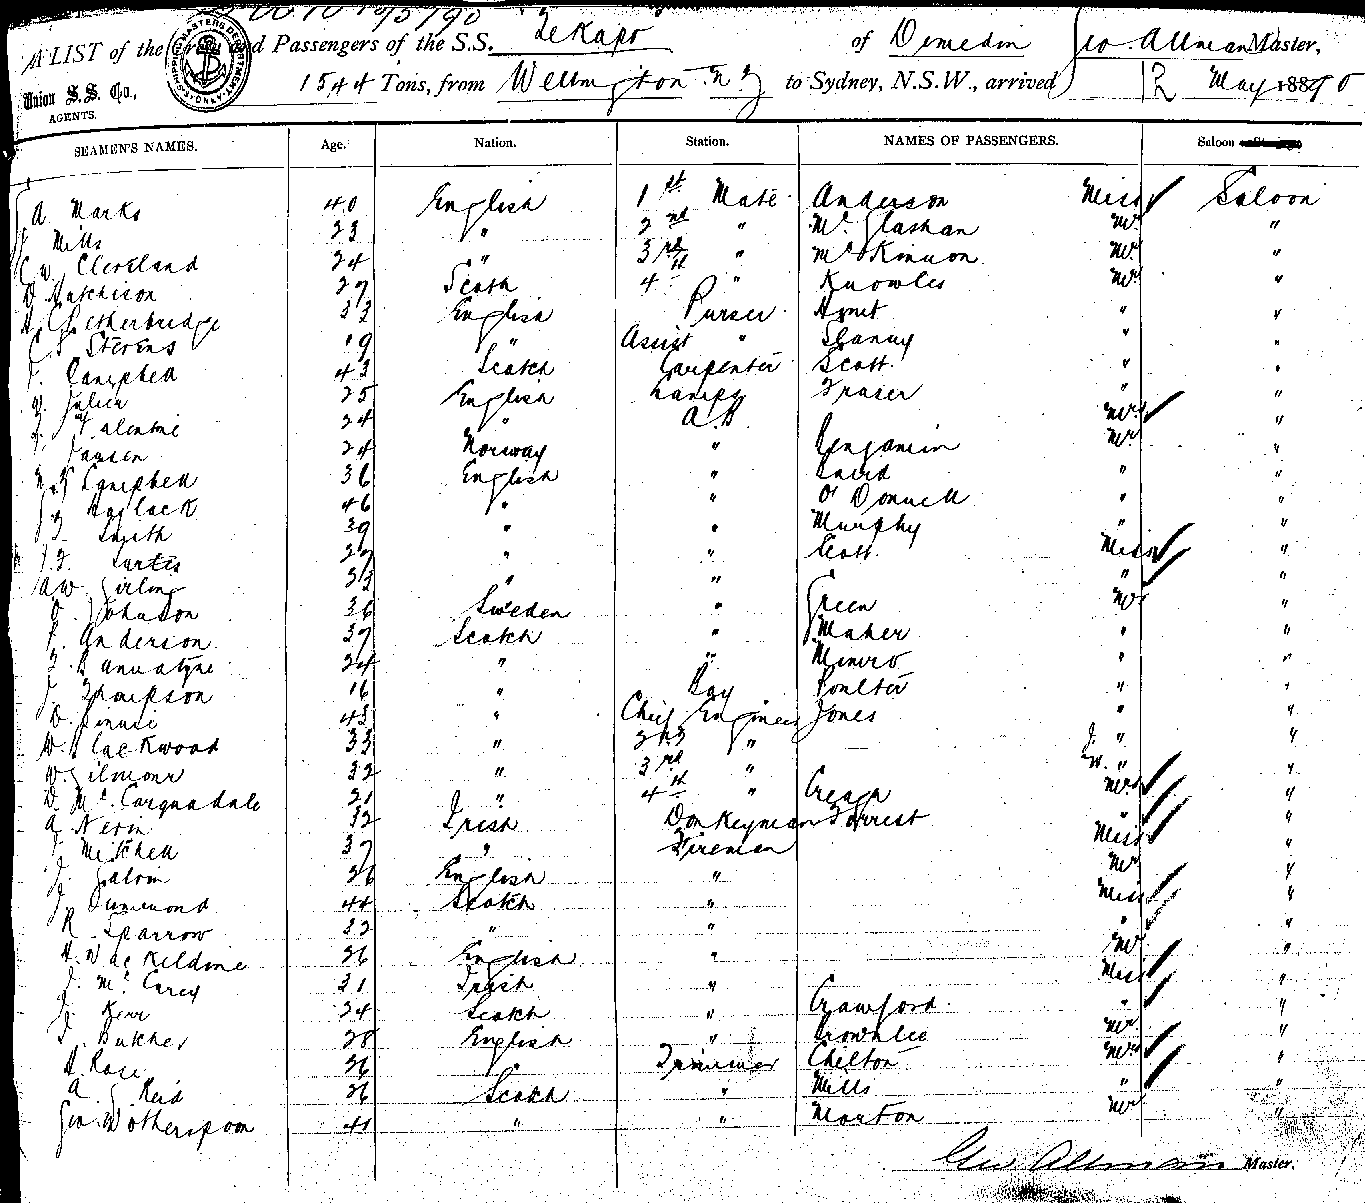 A LIST of the Crew and Passengers of the S.S. Tekapo of Dunedin Geo. Allman Master,
Union S.S. Co., AGENTS. 1544 Tons, from Wellington N.Z to Sydney, N.S.W., arrived 12 May 1890
SEAMEN'S NAMES. Age. Nation. Station. NAMES OF PASSENGERS. Saloon
A Marks 40 English 1st Mate Anderson Miss Saloon
Mills 23 " 2nd " McGlashan Mr "
C W. Cleveland 24 " 3rd " McKinnon Mr "
D Hutchison 27 Scotch 4th " Knowles Mr "
Petherbridge 33 English Purser "
Stevens 19 " Assist " "
Campbell 43 Scotch Carpenter Scott " "
Julien 25 English Lamps Fraser " "
Valentine 24 " A.B Mrs "
Jansen 24 Norway " Benjamin Mr "
Campbell 36 English " Laird " "
46 " " O'Donnell " "
Smith 39 " " Murphy " "
Curtis 27 " " Scott Miss "
A W Girling 33 " " " "
Johnson 36 Sweden " Green Mr "
Anderson 37 Scotch " Maher " "
Bannatyne 24 " " Munro " "
Thompson 16 " Boy Poulter " "
D. 43 " Chief Engineer Jones " "
W. Lockwood 33 " 2nd " J. " "
W Gilmour 32 " 3rd " W. " "
D McCorquadale 21 " 4th " Creagh Mrs "
A Nevin 32 Irish Donkeyman Forrest " "
J Mitchell 37 " Fireman Miss "
J Galvin 26 English " Mr "
J Dummond 44 Scotch " Miss "
R Sparrow 32 " " " "
26 English " Mr "
J. McCarey 31 Irish " Miss "
J. Kerr 24 Scotch " Crawford " "
Butcher 28 English " Brownlie Mr "
H Rose 26 " Trimmer Chilton Mrs "
A G Reid 26 Scotch " Mills " "
Geo Wotherspoon 41 " " Morton Mr "
Geo Allman Master.